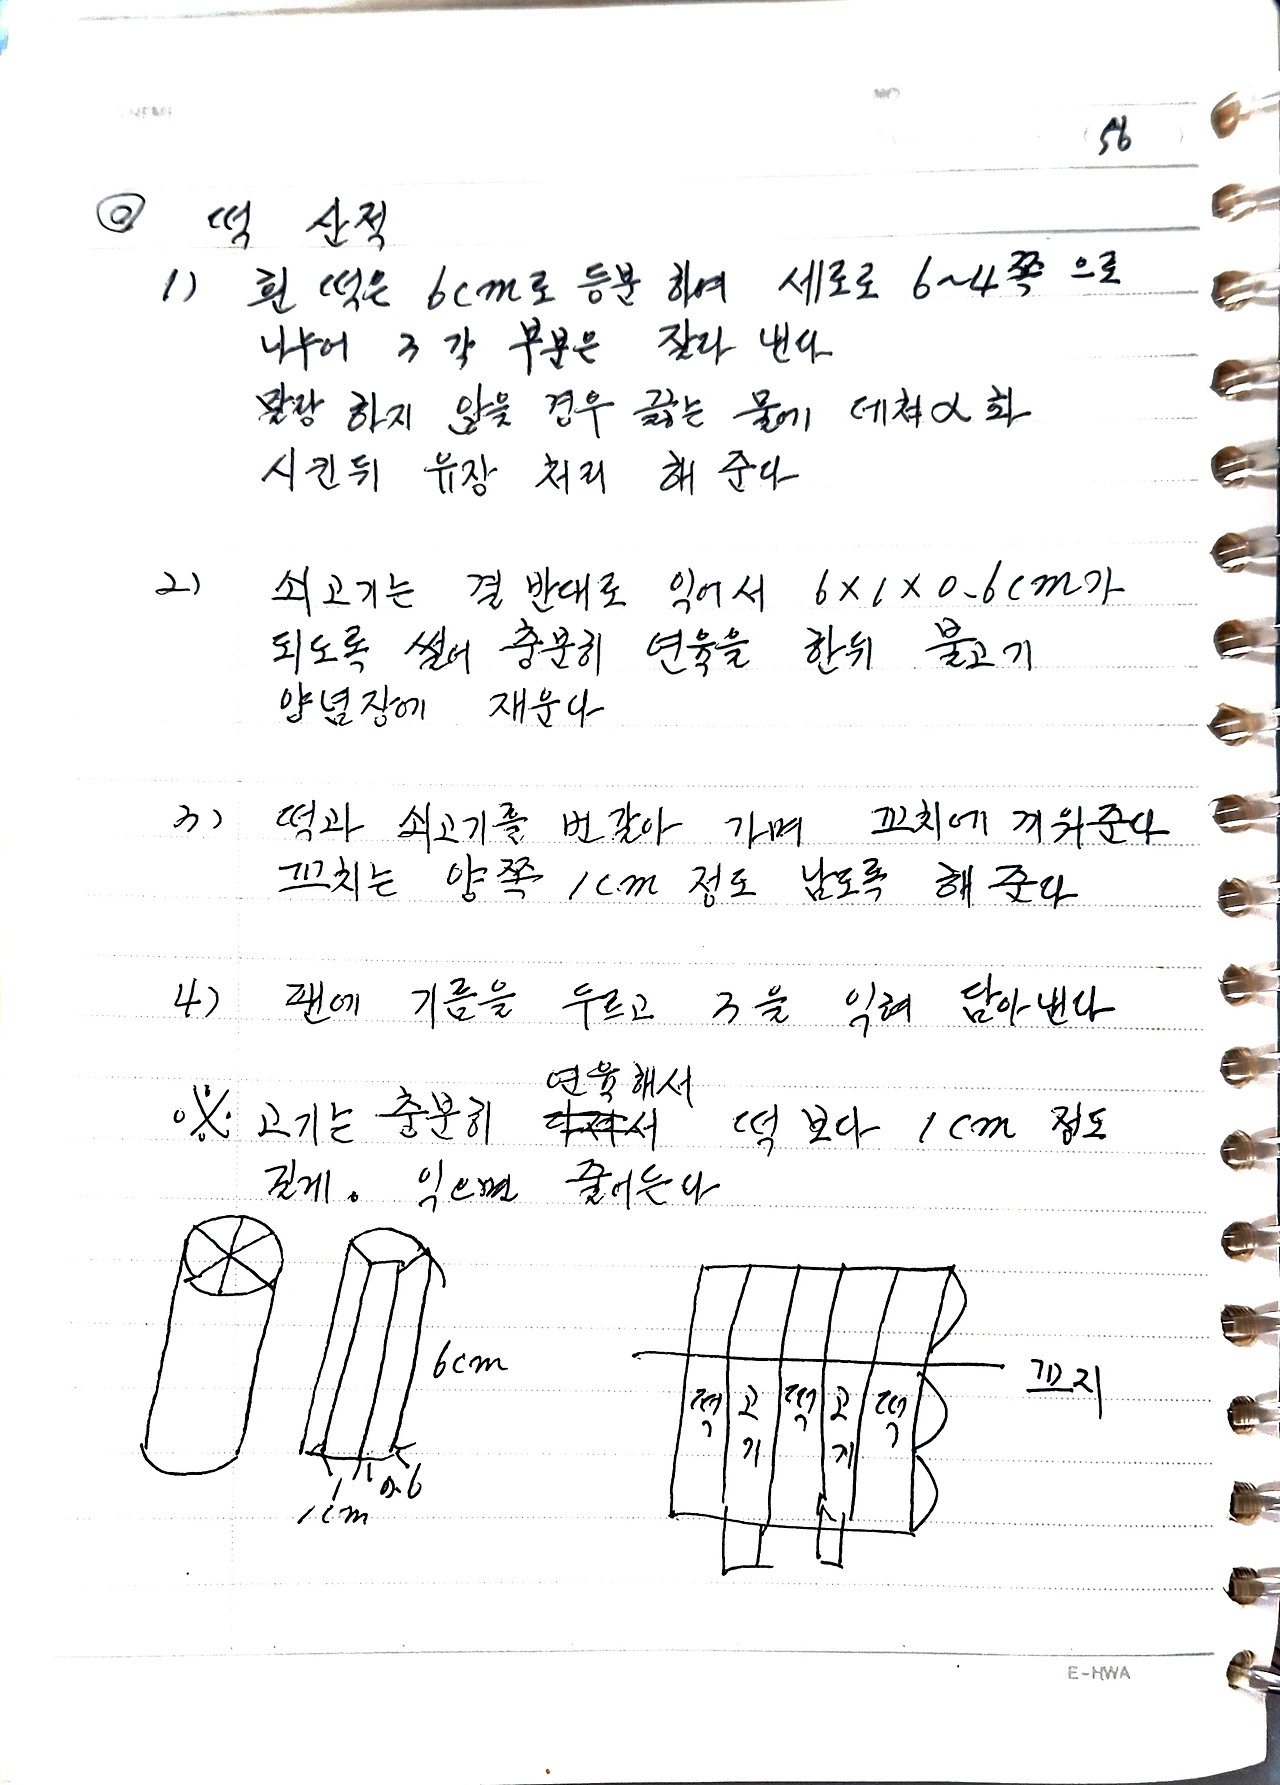 56
◎ 떡 산적
1) 흰 떡은 6cm로 등분 하여 세로로 6~4쪽 으로
나누어 3각 부분은 잘라 낸다
말랑 하지 않을 경우 끓는 물에 데쳐 α화
시킨뒤 유장 처리 해 준다
2) 쇠고기는 결 반대로 익어서 6×1×0.6cm가
되도록 썰어 충분히 연육을 한뒤 불고기
양념장에 재운다
3) 떡과 쇠고기를 번갈아 가며 꼬치에 껴워준다
꼬치는 양쪽 1cm 정도 남도록 해 준다
4) 팬에 기름을 두르고 3을 익혀 담아낸다
※ 고기는 충분히 연육해서 떡 보다 1cm 정도
길게. 익으면 줄어든다
6cm
1cm
0.6
떡 고기 떡 고기 떡
꼬지
E-HWA